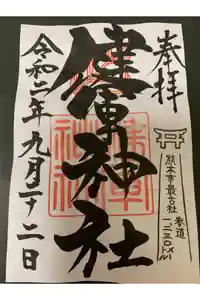 奉拝
熊本市最古社
参道
一、二三〇メートル
健軍神社
健軍
神社
令和二年九月二十二日